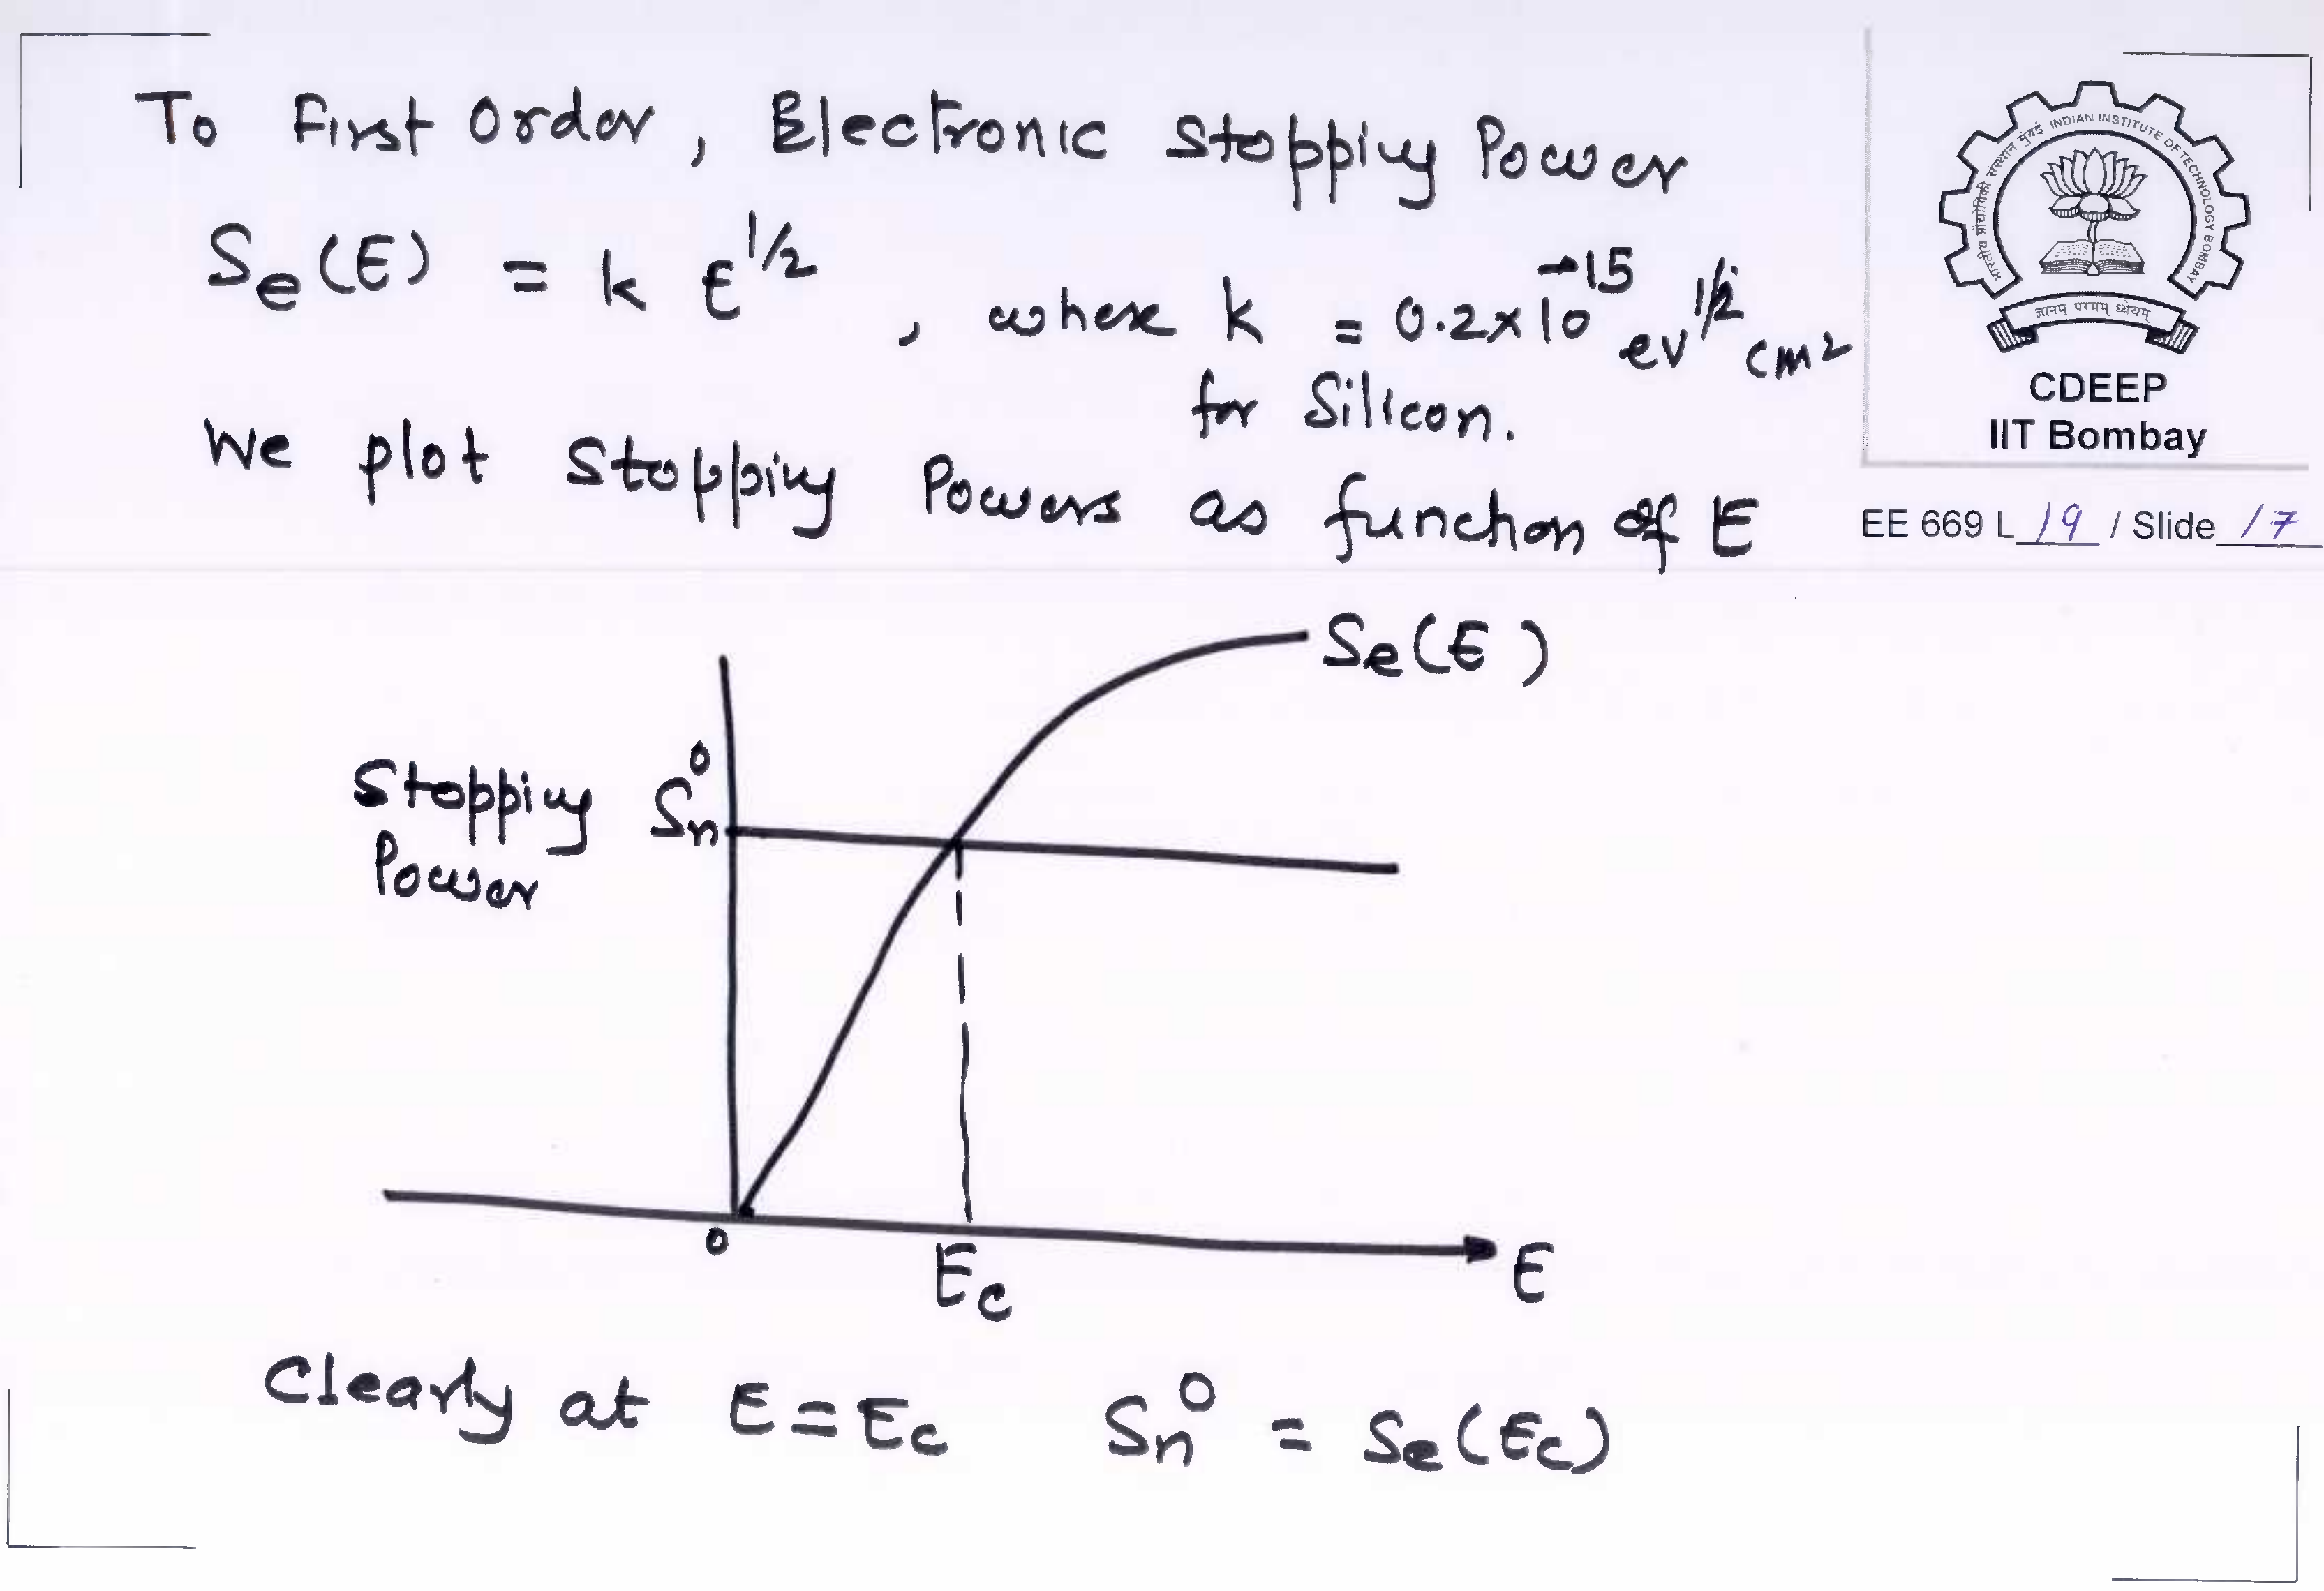 To First Order, Electronic Stopping Power
Se(E) = k E^1/2, where k = 0.2×10^-15 ev^1/2 cm^2
for Silicon.
We plot Stopping Powers as function of E
भारतीय प्रौद्योगिकी संस्थान मुंबई
INDIAN INSTITUTE OF TECHNOLOGY BOMBAY
ज्ञानम् परमम् ध्येयम्
CDEEP
IIT Bombay
EE 669 L 19 / Slide 17
Se(E)
Stopping
Power
Sn^0
0
Ec
E
Clearly at E=Ec Sn^0 = Se(Ec)